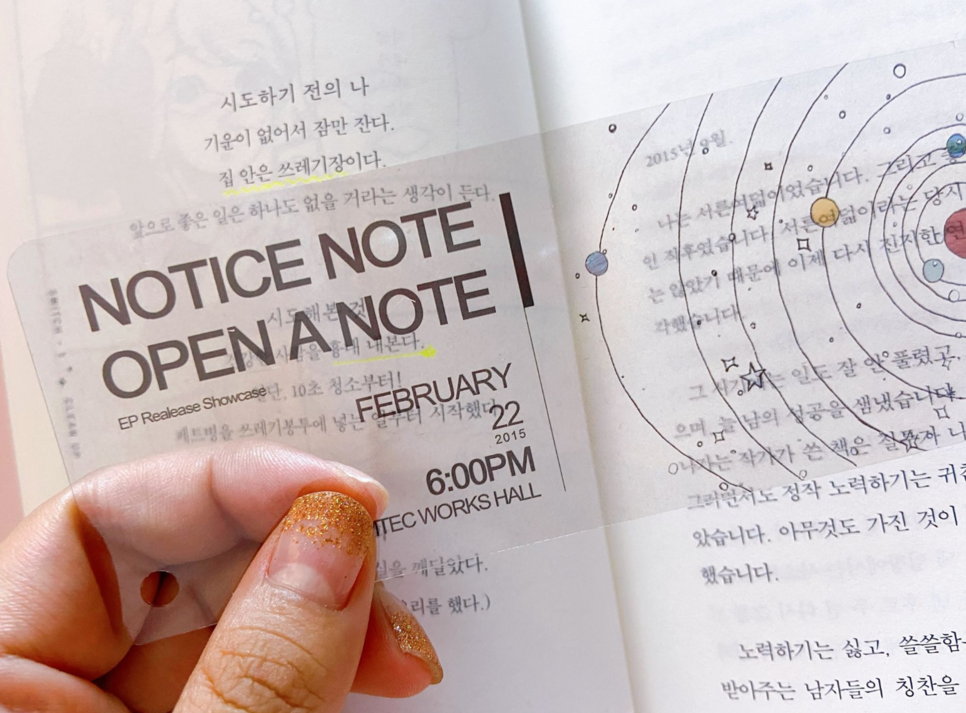 시도하기 전의 나
기운이 없어서 잠만 잔다.
집 안은 쓰레기장이다.
앞으로 좋은 일은 하나도 없을 거라는 생각이 든다.
NOTICE NOTE
OPEN A NOTE
시도해본 것
내본다.
10초 청소부터!
페트병을 쓰레기봉투에 넣는 일부터 시작했다.
EP Realease Showcase
FEBRUARY
22
2015
6:00PM
WORKS HALL
깨달았다.
리를 했다.)
2015년 9월.
나는 서른여덟이었습니다. 그리고
서른여덟이라는 당시
인 직후였습니다.
는 않았기 때문에 이제 다시 진지한 연
각했습니다.
그 시기 인도 잘 안 풀렸고,
으며, 늘 남의 성공을 샘냈습니다.
나는 작가가 쓴 책은
그러면서도 정작 노력하기는 귀찮
았습니다. 아무것도 가진 것이
했습니다.
노력하기는 싫고, 쓸쓸함
받아주는 남자들의 칭찬을